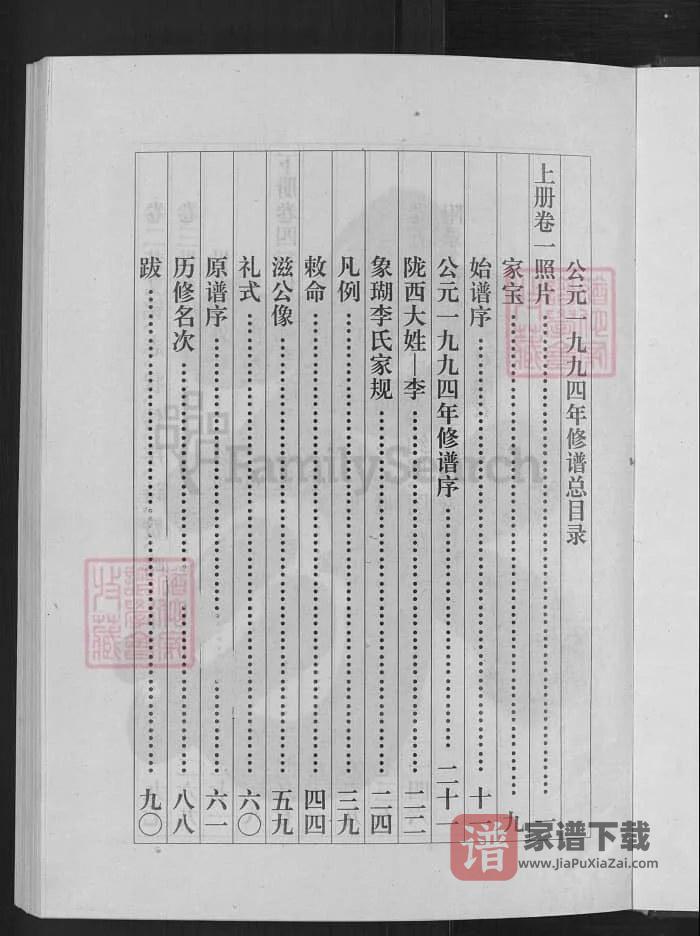 公元一九九四年修谱总目录
上册卷一照片……………………一
家宝……………………九
始谱序……………………十一
公元一九九四年修谱序……………………二十一
陇西大姓—李……………………二二
象瑚李氏家规……………………二四
凡例……………………三九
敕命……………………四四
滋公像……………………五九
礼式……………………六〇
原谱序……………………六一
历修名次……………………八八
跋……………………九〇
FamilySearch
谱 家谱下载
www.JiaPuXiaZai.com